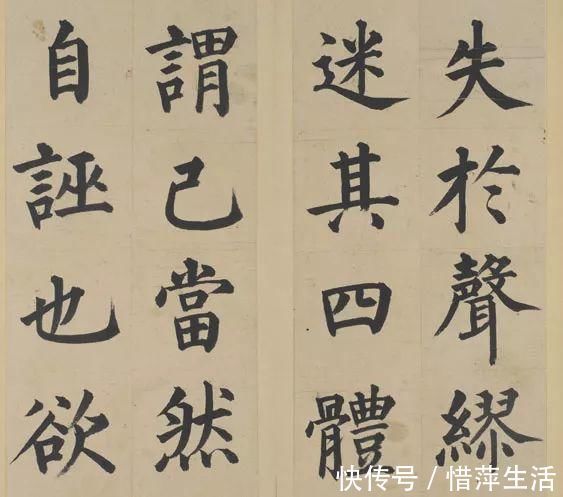 失於聲繆
迷其四體
謂己當然
自誣也欲
快传号/惜萍生活